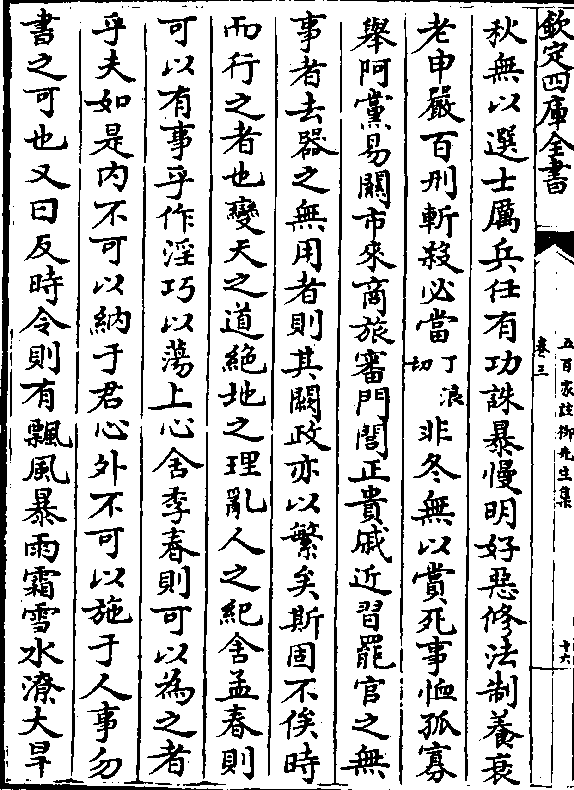 欽定四庫全書
五百家註柳先生集
卷三
十六
秋無以選士厲兵任有功誅暴慢明好惡修法制養衰
老申嚴百刑斬殺必當丁浪切非冬無以賞死事恤孤寡
舉阿黨易關市來商旅審門閭正貴戚近習罷官之無
事者去器之無用者則其闕政亦以繁矣斯固不俟時
而行之者也變天之道絶地之理亂人之紀舍孟春則
可以有事乎作淫巧以蕩上心舍季春則可以為之者
乎夫如是内不可以納于君心外不可以施于人事勿
書之可也又曰反時令則有飄風暴雨霜雪水潦大旱